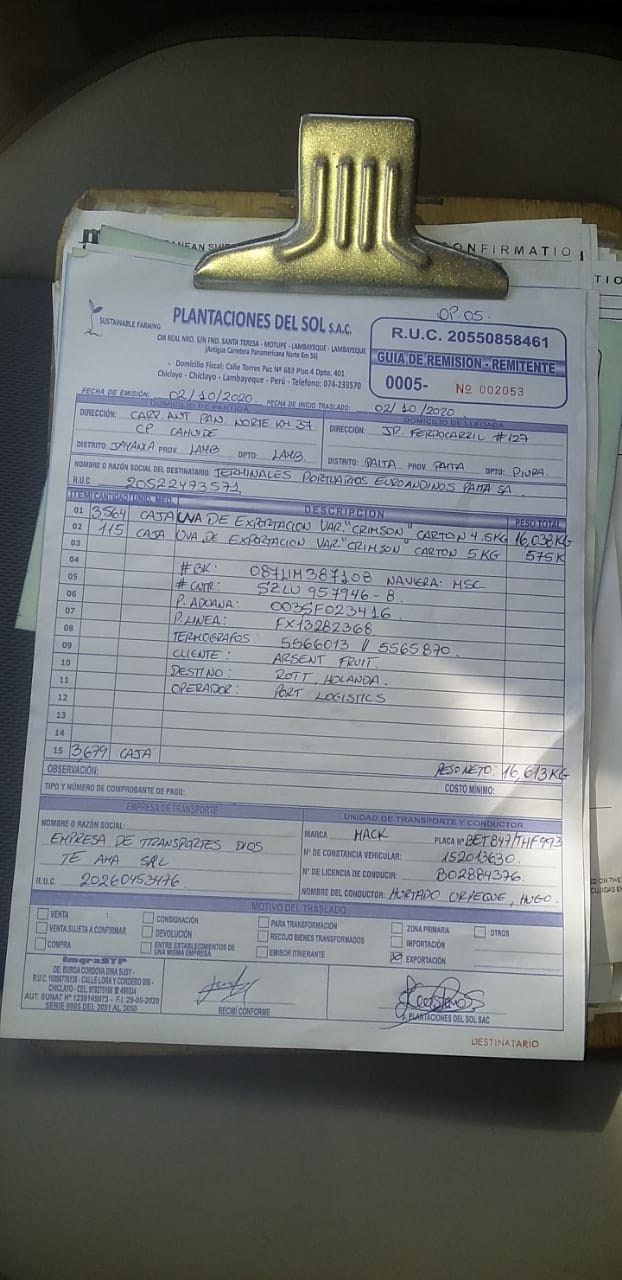 ONFIRMATIO
TIO
SUSTAINABLE FARMING
PLANTACIONES DEL SOL S.A.C.
CM REAL NRO. S/N FND. SANTA TERESA - MOTUPE - LAMBAYEQUE - LAMBAYEQUE
(Antigua Carretera Panamericana Norte Km 56)
Domicilio Fiscal: Calle Torres Paz Nº 683 Piso 4 Dpto. 401
Chiclayo - Chiclayo - Lambayeque - Perú - Telefono: 074-233570
OP 05.
R.U.C. 20550858461
GUIA DE REMISION - REMITENTE
0005- Nº 002053
FECHA DE EMISIÓN: 02/10/2020 FECHA DE INICIO TRASLADO: 02/10/2020
DOMICILIO DE PARTIDA
DIRECCIÓN: CARR. ANT. PAN. NORTE KM 37
CP CAHUIDE
DISTRITO: JAYANCA PROV. LAMB DPTO: LAMB.
DOMICILIO DE LLEGADA
DIRECCIÓN: JR. FERROCARRIL #127
DISTRITO: PAITA PROV. PAITA DPTO: PIURA.
NOMBRE O RAZÓN SOCIAL DEL DESTINATARIO: TERMINALES PORTUARIOS EUROANDINOS PAITA SA
R.U.C. 20522473571
ITEM CANTIDAD UNID. MED. DESCRIPCION PESO TOTAL
01 3564 CAJA UVA DE EXPORTACION VAR. "CRIMSON" CARTON 4.5KG 16,038KG
02 115 CAJA UVA DE EXPORTACION VAR "CRIMSON" CARTON 5KG 575K
03
04 #BK: 087LIM387108 NAVIERA: MSC
05 #CNTR: SZLU 957946-8.
06 P. ADUANA: 003SF023416
07 P. LINEA: FX13282368
08 TERMOGRAFOS: 5566013 // 5565870
09 CLIENTE: ARSENT FRUIT
10 DESTINO: ROTT, HOLANDA.
11 OPERADOR: PORT LOGISTICS
12
13
14
15 3,679 CAJA PESO NETO: 16,613KG
OBSERVACIÓN:
TIPO Y NÚMERO DE COMPROBANTE DE PAGO: COSTO MÍNIMO:
EMPRESA DE TRANSPORTE
NOMBRE O RAZÓN SOCIAL:
EMPRESA DE TRANSPORTES DIOS
TE AMA SRL
R.U.C. 20260453476
UNIDAD DE TRANSPORTE Y CONDUCTOR
MARCA MACK PLACA Nº BET847/THF993
Nº DE CONSTANCIA VEHICULAR: 152013630.
Nº DE LICENCIA DE CONDUCIR: B02884376
NOMBRE DEL CONDUCTOR: HURTADO ORPEQUE, HUGO.
MOTIVO DEL TRASLADO
VENTA CONSIGNACIÓN PARA TRANSFORMACIÓN ZONA PRIMARIA OTROS
VENTA SUJETA A CONFIRMAR DEVOLUCIÓN RECOJO BIENES TRANSFORMADOS IMPORTACIÓN
COMPRA ENTRE ESTABLECIMIENTOS DE UNA MISMA EMPRESA EMISOR ITINERANTE EXPORTACIÓN
ImgraSYP
DE: BURGA CORDOVA DINA SUSY -
CHICLAYO - CEL.
AUT. SUNAT Nº 1239145073 - F.I. 29-05-2020
SERIE 0005 DEL 2051 AL 3050
RECIBÍ CONFORME
P. PLANTACIONES DEL SOL SAC
DESTINATARIO